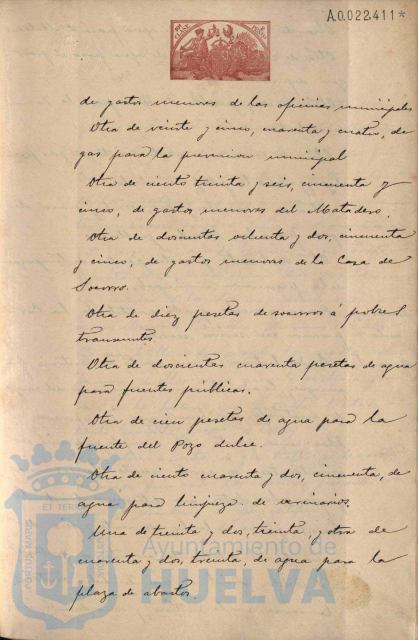 A.0.022.411*
de gastos menores de las oficinas municipales
Otra de veinte y cinco, cuarenta y cuatro, de
gas para la prevencion municipal
Otra de ciento treinta y seis, cincuenta y
cinco, de gastos menores del Matadero.
Otra de doscientas ochenta y dos, cincuenta
y cinco, de gastos menores de la Casa de
Socorro.
Otra de diez pesetas de socorros á pobres
transeuntes
Otra de doscientas cuarenta pesetas de agua
para fuentes públicas.
Otra de cien pesetas de agua para la
fuente del Pozo dulce.
Otra de ciento cuarenta y dos, cincuenta, de
agua para limpieza de urinarios.
Una de treinta y dos, treinta, y otra de
cuarenta y dos, treinta, de agua para la
plaza de abastos
Ayuntamiento de
HUELVA
PORTUS MARIS
ET TER